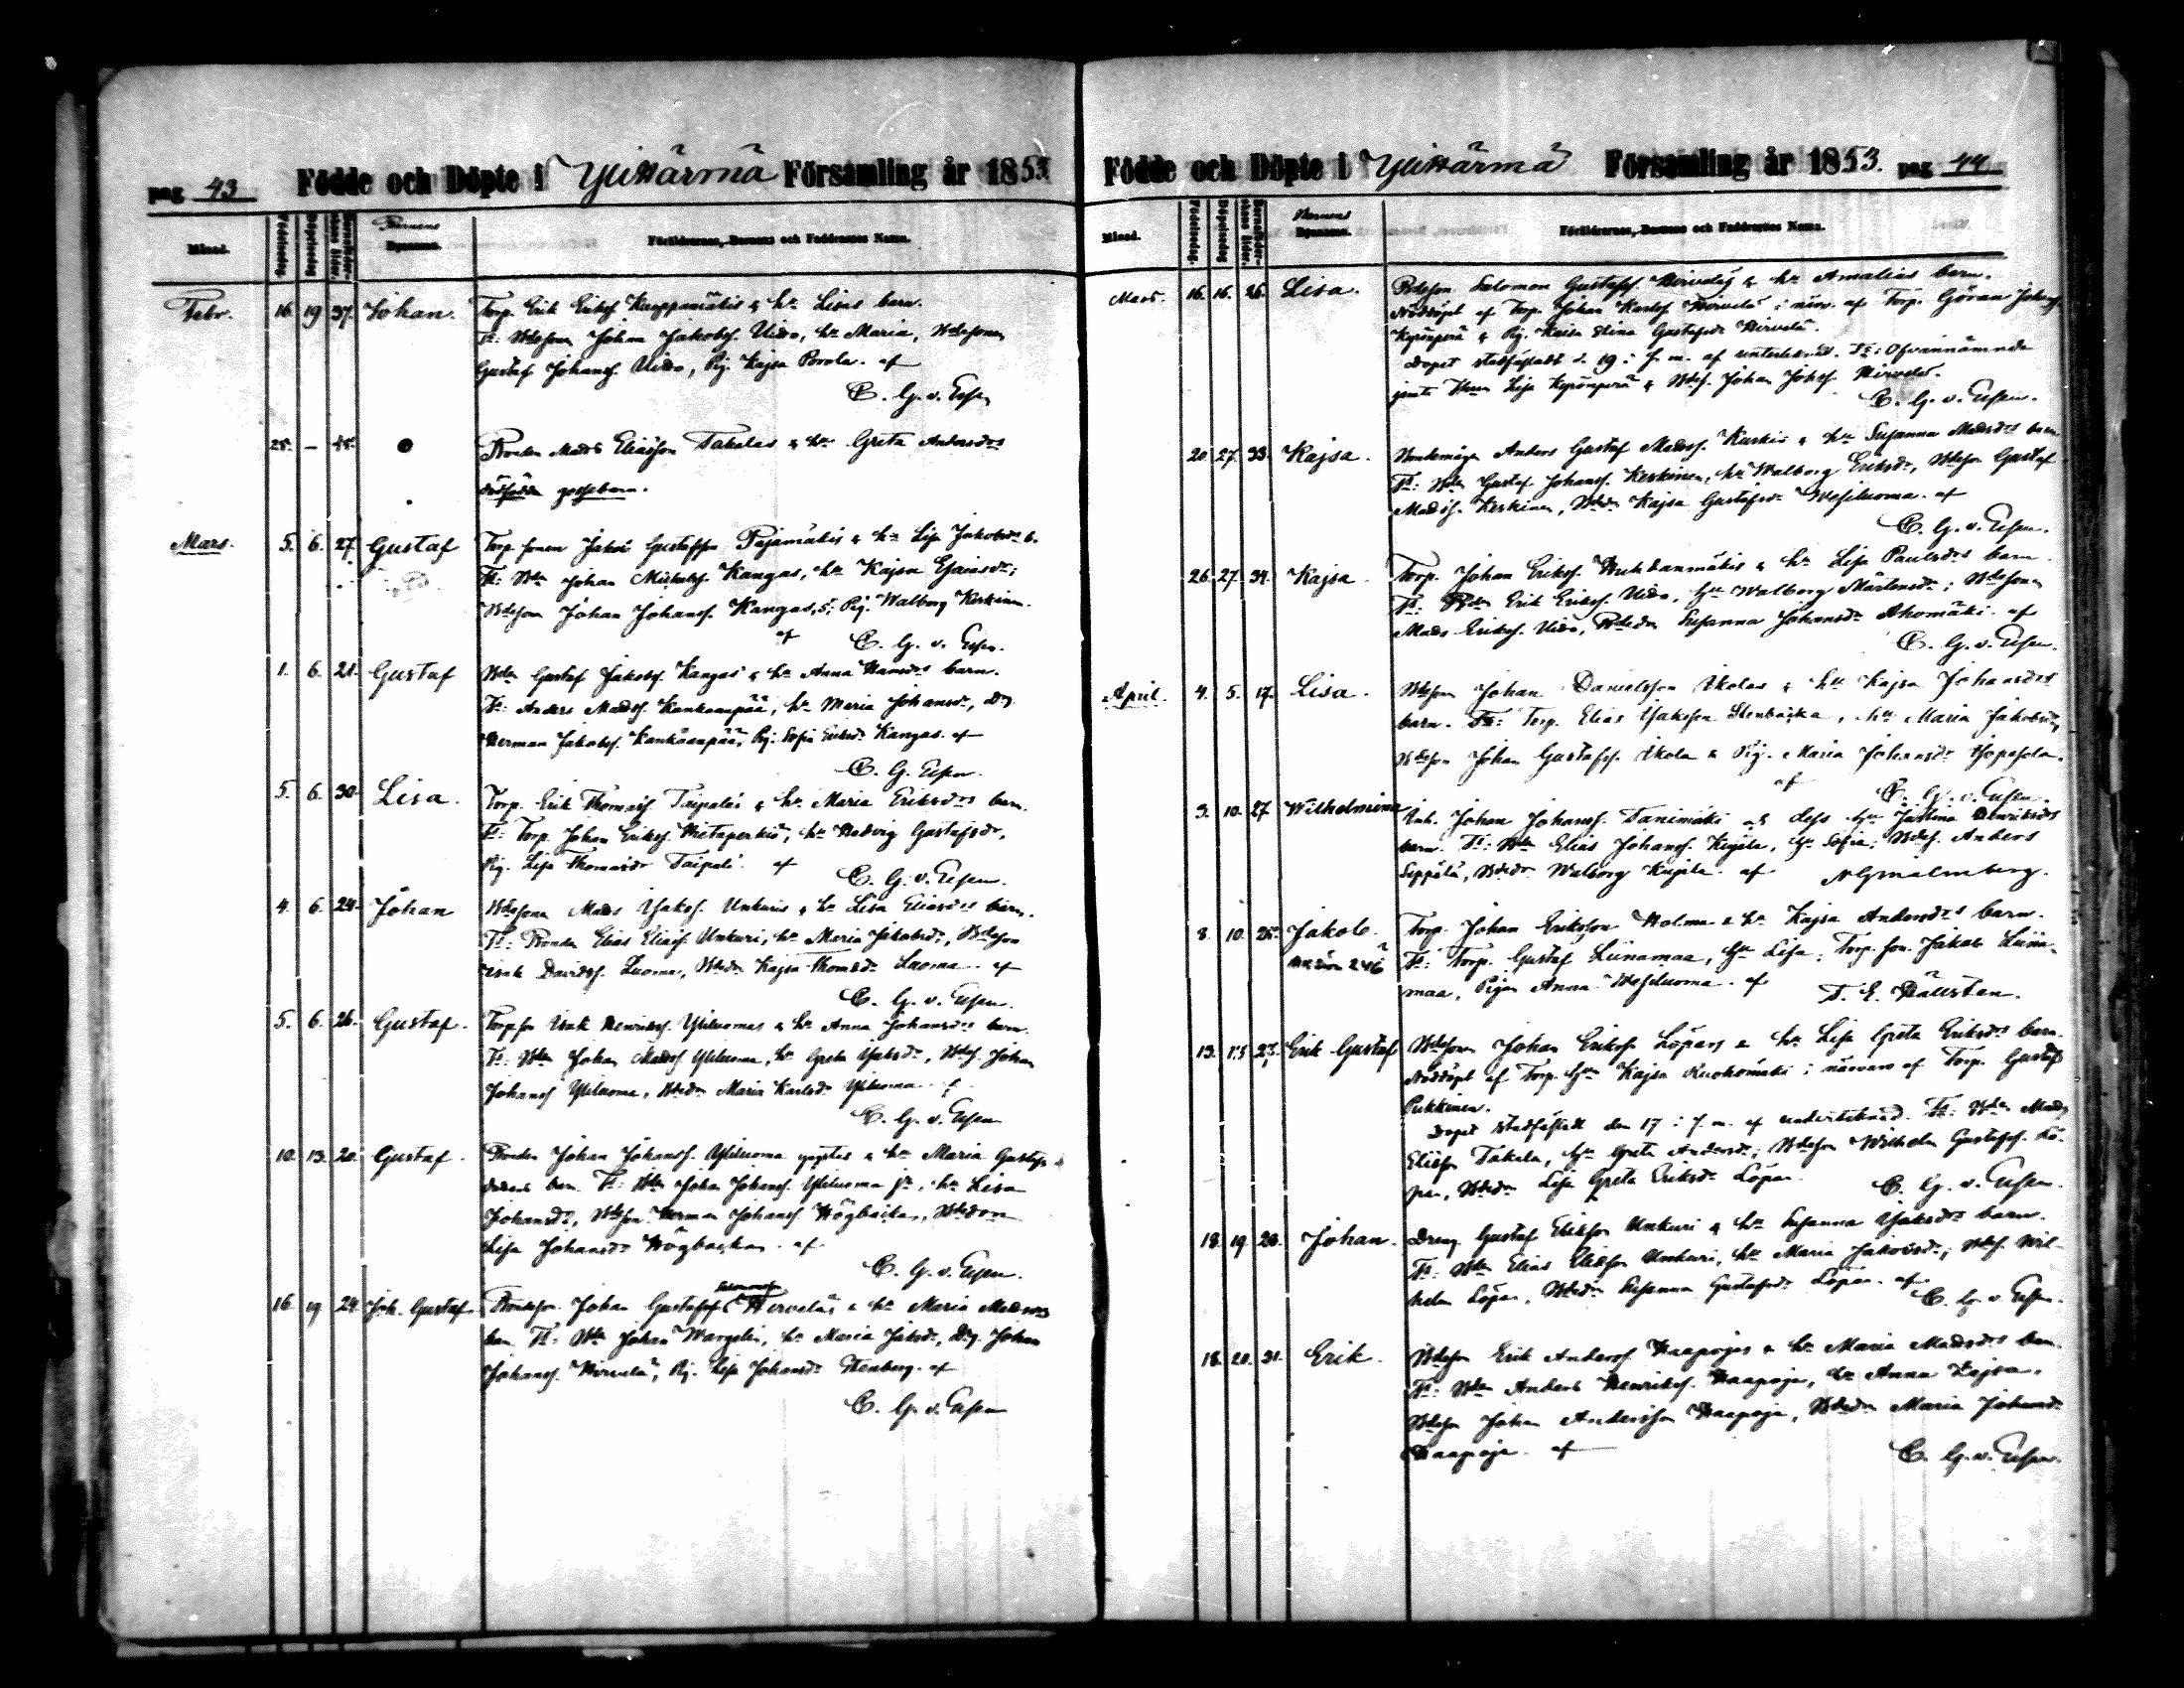 pag 43 Födde och Döpte i Ylihärmä Församling år 1853
Månad. Födelsedag. Döpelsedag Barnens Föräldrarnes, Barnens och Faddrarnes Namn.
Febr. 16. 19 37. Johan. Torp. Erik Eriks. & h. Lisas barn.
Ft: Johan Jakobss. Uido, h. Maria, Bdesonen
Gustaf Johanss. Uido, Pig. Kajsa Porola. af
C. G. v. Essen
25. – 45. Bonden Mads Eliasson Takalas & h. Greta Andersdrs
dödfödda gossebarn.
Mars. 5. 6. 27. Gustaf Torp. sonen Jakob Gustafsson Pajamäkis & h. Lisa Jakobsdrs b.
Ft: Bden Johan Michelss. Kangas, h. Kajsa Esaiasdr;
Bdeson Johan Johanss. Kangas, Pig. Walborg Keskinen.
af C. G. v. Essen.
1. 6. 21. Gustaf Bden Gustaf Jakobss. Kangas & h. Anna barn.
Ft: Anders Madss. Kankaanpää, h. Maria Johansdr, Dr.
Herman Jakobss. Kankaanpää, Pig. Sofia Eriksdr Kangas. af
C. G. Essen.
5. 6. 30. Lisa. Torp. Erik Thomass. Taipales & h. Maria Eriksdrs barn.
Ft: Torp. Johan Erikss. Hietaperkiö, h. Hedvig Gustafsdr,
Pig. Lisa Thomasdr Taipale. af C. G. v. Essen.
4. 6. 24. Johan Bdesonen Mads Isakss. Unkuris & h. Lisa Eliasdrs barn.
Ft: Bonden Elias Eliass. Unkuri, h. Maria Jakobsdr, Bdeson
Isak Davidss. Luoma, Bdedr Kajsa Thomasdr Luoma. af
C. G. v. Essen.
5. 6. 26. Gustaf. Torpson Isak Henrikss. Yliluomas & h. Anna Johansdrs barn.
Ft: Bden Johan Madss. Yliluoma, h. Greta Isaksdr, Bdes. Johan
Johanss Yliluoma, Bdedr Maria Karlsdr Yliluoma. af
C. G. v. Essen
10. 13. 20. Gustaf. Bonden Johan Johanss. Yliluoma & h. Maria Gustafs
barn. Ft: Bden Johan Johanss. Yliluoma jr, h. Lisa
Johansdr, Bdeson Herman Johanss. Högbacka, Bdedotr
Lisa Johansdr Högbacka. af
C. G. v. Essen.
16. 19 24. Joh. Gustaf Bondeson Johan Gustafss Hirvelas & h. Maria Madsdrs
barn. Ft: Bden Johan Wargelin, h. Maria Jaksdr, Dr. Johan
Johanss. Hirvelä, Pig. Lisa Johansdr Stenberg. af
C. G. v. Essen
Födde och Döpte i Ylihärmä Församling år 1853. pag 44
Månad. Födelsedag. Döpelsedag Barnens Föräldrarnes, Barnens och Faddrarnes Namn.
Mars. 16. 16. 26. Lisa. Bdeson Salomon Gustafss. Hirveläs & h. Amalias barn.
Nöddöpt af Torp. Johan Karlss. Hirvelä i närv. af Torp. Göran Johanss.
Kyrönperä & Pig. Kajsa Stina Gustafsdr Hirvelä.
Dopet stadfästadt d. 19 i f. m. af undertecknad. Ft: Ofvannämnda
jemte Lisa Kyrönperä & Bdes. Johan Johss. Hirvelä.
C. G. v. Essen.
20. 27. 33. Kajsa. Anders Gustaf Madss. & h. Susanna Madsdrs barn
Ft: Bden Gustaf Johanss. Keskinen, h. Walborg Eriksdr, Bdeson Gustaf
Madss. Keskinen, Bdedr Kajsa Gustafsdr Wesiluoma. af
C. G. v. Essen.
26. 27. 34. Kajsa Torp. Johan Erikss. & h. Lisa Paulsdrs barn.
Ft: Bden Erik Erikss. Uido, h. Walborg Mårtensdr; Bdesonen
Mads Erikss. Uido, Bdedr Susanna Johansdr Ahomäki. af
C. G. v. Essen.
April. 4. 5. 17. Lisa. Bdeson Johan Danielsson Ikolas & h. Kajsa Johansdrs
barn. Ft: Torp. Elias Isaksson Stenbacka, h. Maria Jakobsdr,
Bdeson Johan Gustafss. Ikola & Pig. Maria Johansdr
af C. G. v. Essen.
9. 10. 27 Wilhelmina Inh. Johan Johanss. Tanimäki och dess h. Justina Henriksdrs
barn. Ft: Bden Elias Johanss. Kujala, h. Sofia; Bdes. Anders
Seppälä, Bdedr Walborg Kujala. af N G Malmberg.
8. 10. 25. Jakob. Torp. Johan Eriksson Holma & h. Kajsa Andersdrs barn.
Ft: Torp. Gustaf Liinamaa, h. Lisa; Torp. son. Jakob Liina-
maa, Pigan Anna Wesiluoma. af
13. 17. 23. Erik Gustaf Bdesonen Johan Erikss. Löpars & h. Lisa Greta Eriksdrs barn.
Nöddöpt af Torp. h. Kajsa Ruohomäki i närvaro af Torp. Gustaf
Pukkinen.
Dopet stadfästadt den 17 i f. m. af undertecknad. Ft: Bden Mads
Eliass. Takala, h. Greta Andersdr; Bdeson Wilhelm Gustafss. Lö-
par, Bdedr Lisa Greta Eriksdr Löpar. C. G. v. Essen.
18. 19 20. Johan. Dreng Gustaf Eliasson Unkuri & h. Susanna Isaksdrs barn.
Ft: Bden Elias Eliass. Unkuri, h. Maria Jakobsdr; Bdes. Wil-
helm Löpar, Bdedr Susanna Gustafsdr Löpar. af
C. G. v. Essen.
18. 20. 31. Erik. Bdeson Erik Anderss. Haapojas & h. Maria Madsdrs barn.
Ft: Bden Anders Henrikss. Haapoja, h. Anna Kajsa,
Bdeson Johan Andersson Haapoja, Bdedr Maria Johansdr
Haapoja. af C. G. v. Essen.